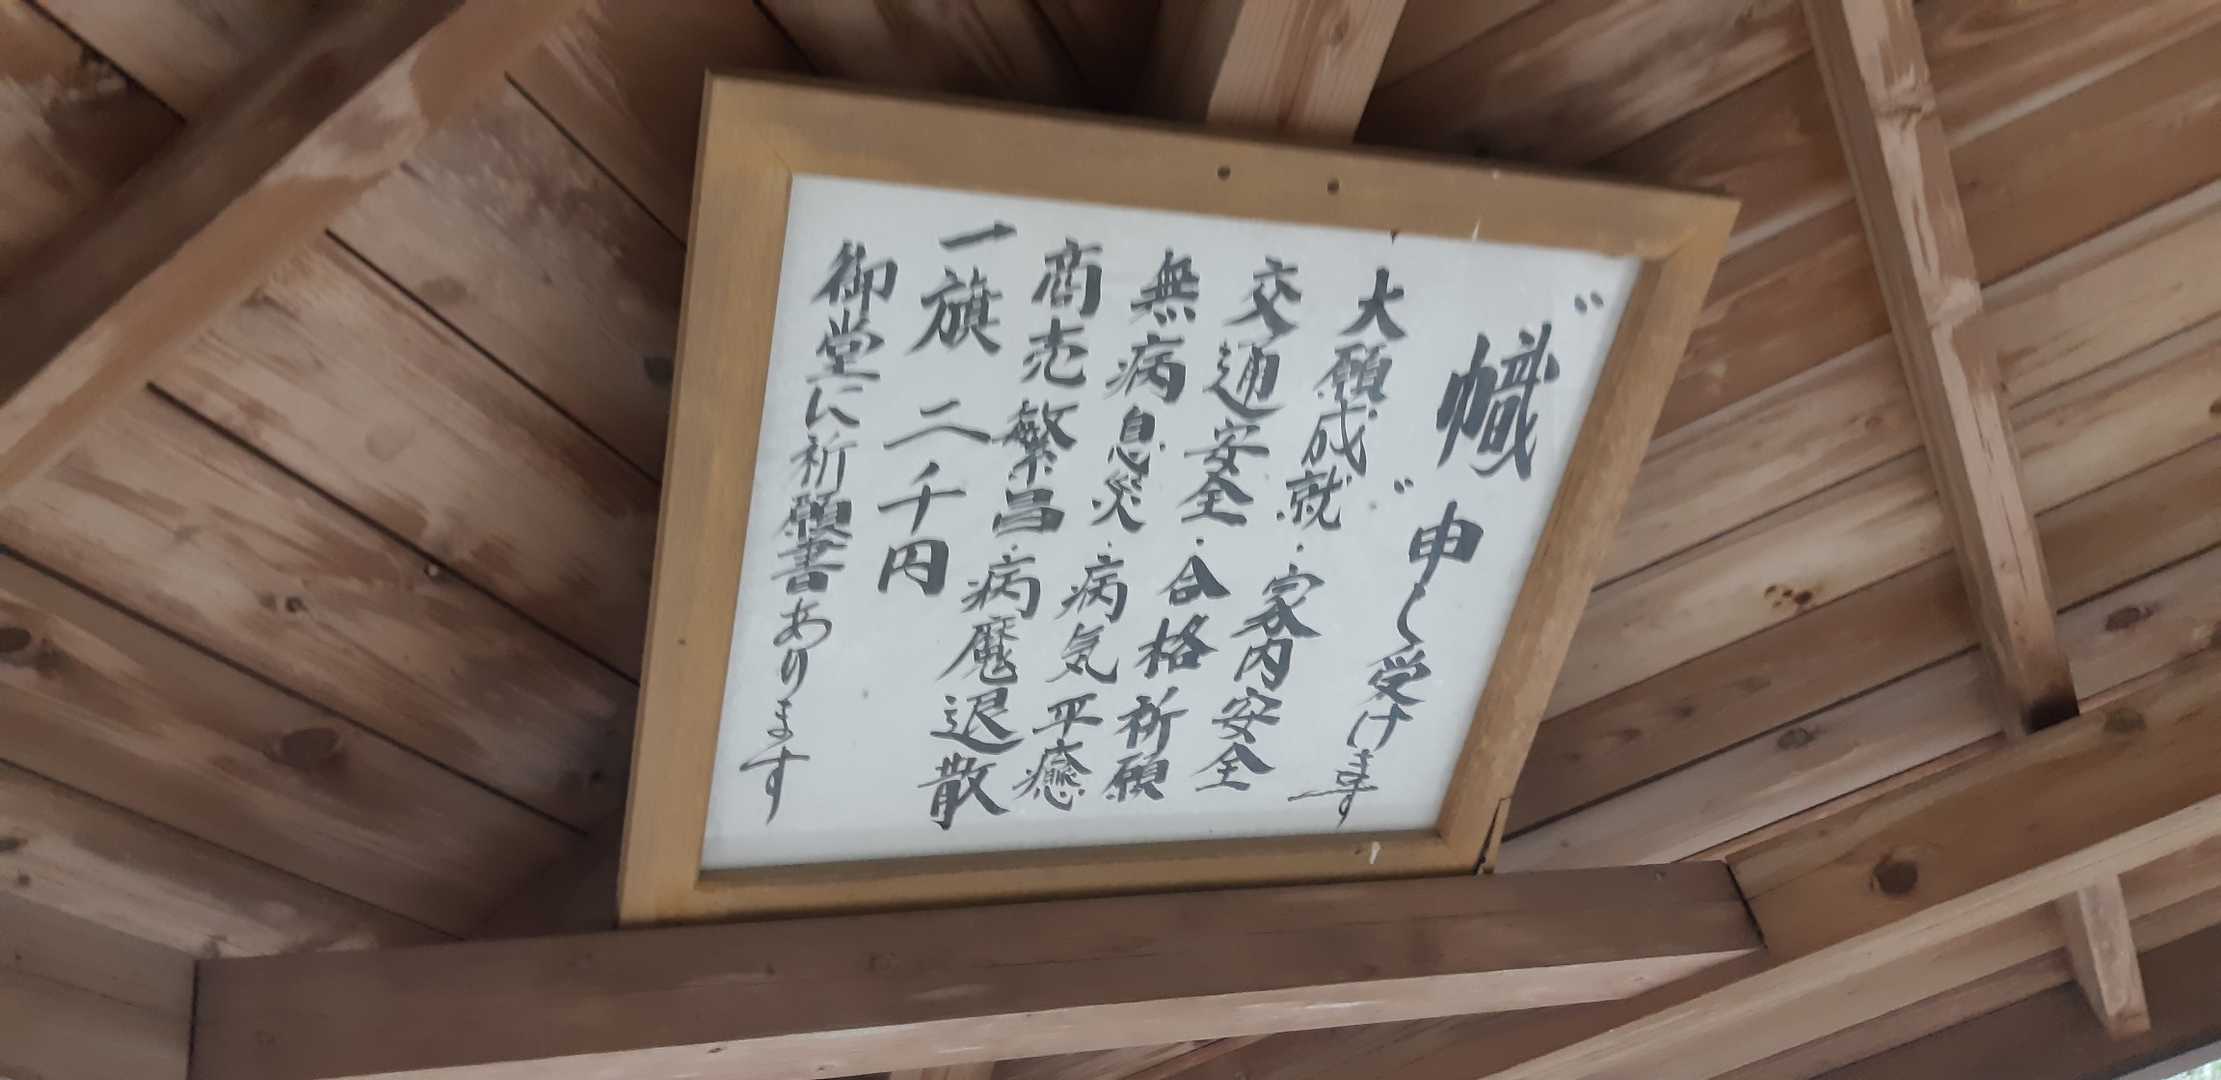 〝幟〟申し受けます
大願成就・家内安全
交通安全・合格祈願
無病息災・病気平癒
商売繁昌・病魔退散
一旗 二千円
御堂に祈願書あります